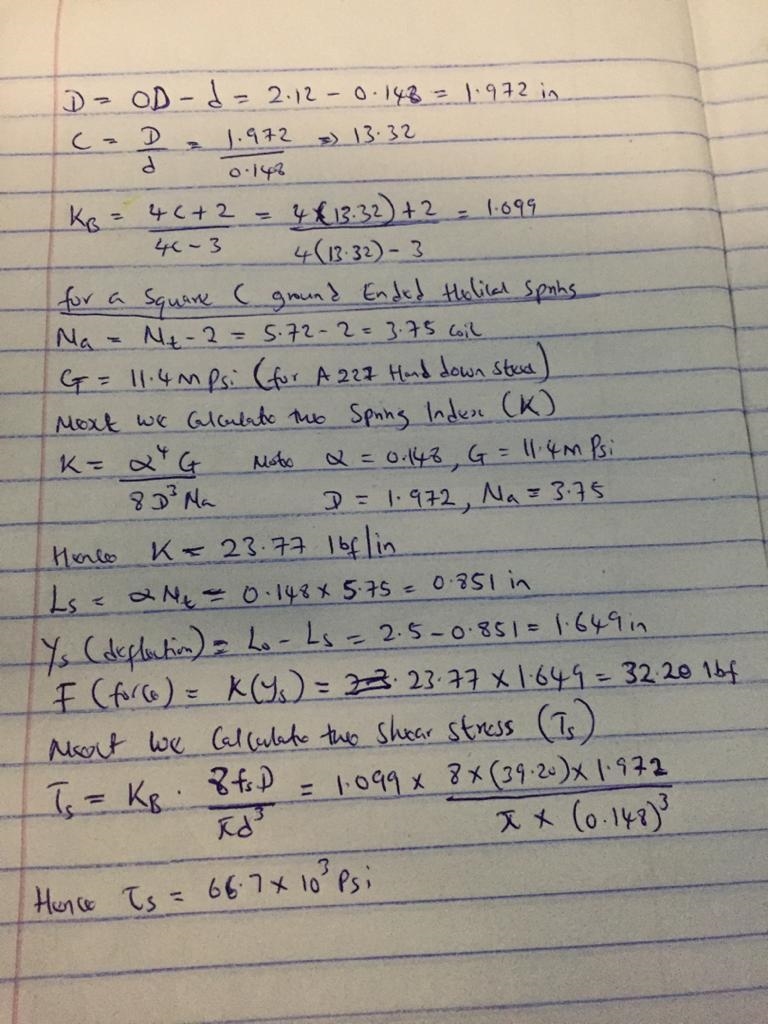 D = OD - d = 2.12 - 0.148 = 1.972 in
C = D/d = 1.972/0.148 => 13.32
KB = (4C+2)/(4C-3) = (4(13.32)+2)/(4(13.32)-3) = 1.099
for a Square C ground Ended Helical Springs
Na = Nt - 2 = 5.72 - 2 = 3.75 coil
G = 11.4 m Psi (for A 227 Hard down steel)
Next we Calculate the Spring Index (K)
K = α⁴G/8D³Na Note α = 0.148, G = 11.4m Psi
D = 1.972, Na = 3.75
Hence K = 23.77 lbf/in
Ls = αNt = 0.148 × 5.75 = 0.851 in
Ys (deflection) = Lo - Ls = 2.5 - 0.851 = 1.649 in
F (force) = K(Ys) = 23.77 × 1.649 = 32.20 lbf
Next we Calculate the Shear Stress (Ts)
Ts = KB · 8fsD/πd³ = 1.099 × 8×(39.20)×1.972/π × (0.148)³
Hence τs = 66.7 × 10³ Psi